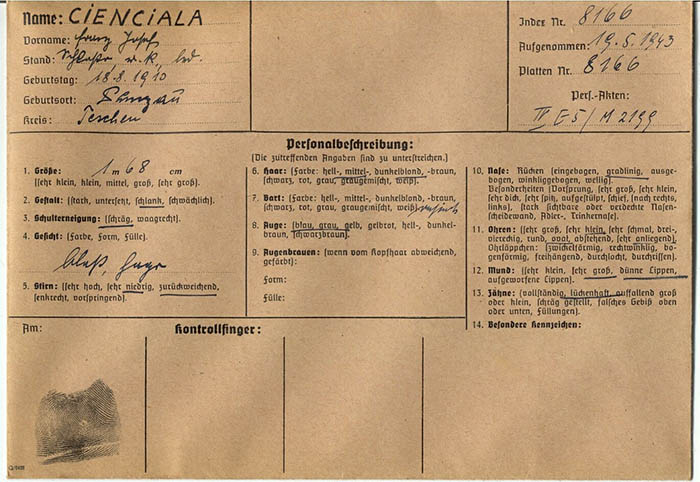 Name: CIENCIALA
Vorname: Franz Josef
Stand: Schlosser, r.k., led.
Geburtstag: 18.8.1910
Geburtsort:
Kreis: Teschen
Index Nr. 8166
Aufgenommen: 19.5.1943
Platten Nr. 8166
Pers.-Akten:
IV E5/M 2199
Personalbeschreibung:
(Die zutreffenden Angaben sind zu unterstreichen.)
1. Größe: 1 m 68 cm
(sehr klein, klein, mittel, groß, sehr groß).
2. Gestalt: (stark, untersetzt, schlank, schwächlich).
3. Schulterneigung: (schräg, waagrecht).
4. Gesicht: (Farbe, Form, Fülle).
blaß,
5. Stirn: (sehr hoch, sehr niedrig, zurückweichend,
senkrecht, vorspringend).
6. Haar: (Farbe: hell-, mittel-, dunkelblond, -braun,
schwarz, rot, grau, graugemischt, weiß).
7. Bart: (Farbe: hell-, mittel-, dunkelblond, -braun,
schwarz, rot, grau, graugemischt, weiß)
8. Auge: (blau, grau, gelb, gelbrot, hell-, dunkel-
braun, schwarzbraun).
9. Augenbrauen: (wenn vom Kopfhaar abweichend,
gefärbt):
Form:
Fülle:
10. Nase: Rücken (eingebogen, gradlinig, ausge-
bogen, winkliggebogen, wellig).
Besonderheiten (Vorsprung, sehr groß, sehr klein,
sehr dick, sehr spitz, aufgestülpt, schief, [nach rechts,
links], stark sichtbare oder verdeckte Nasen-
scheidewand, Adler-, Trinkernase).
11. Ohren: (sehr groß, sehr klein, sehr schmal, drei-,
viereckig, rund, oval, abstehend, sehr anliegend).
Ohrläppchen: (zwickelförmig, rechtwinklig, bo-
genförmig, freihängend, durchlocht, durchrissen).
12. Mund: (sehr klein, sehr groß, dünne Lippen,
aufgeworfene Lippen).
13. Zähne: (vollständig, lückenhaft, auffallend groß
oder klein, schräg gestellt, falsches Gebiß oben
oder unten, Füllungen).
14. Besondere Kennzeichen:
Am:
Kontrollfinger: